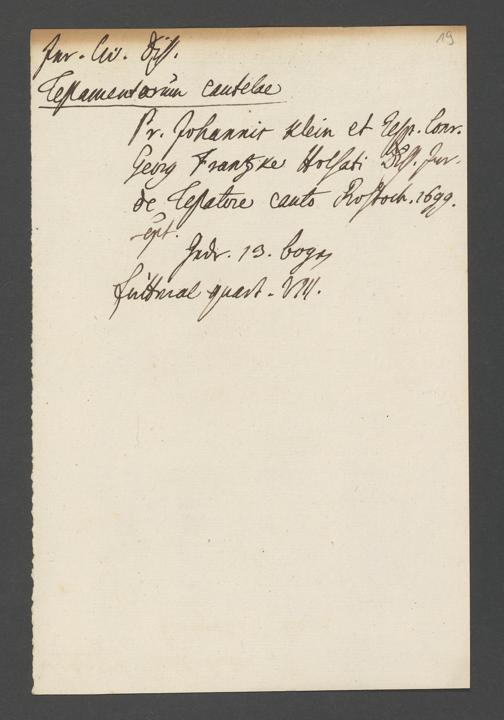 19
Jur. Civ. Diss.
Testamentorum cautelae
Pr. Johannis Klein et Resp. Conr.
Georg Frantzke Holsati Diss. Jur.
de Testatore cauto Rostoch. 1699.
Gedr. 13. bogen
quart. VIII.